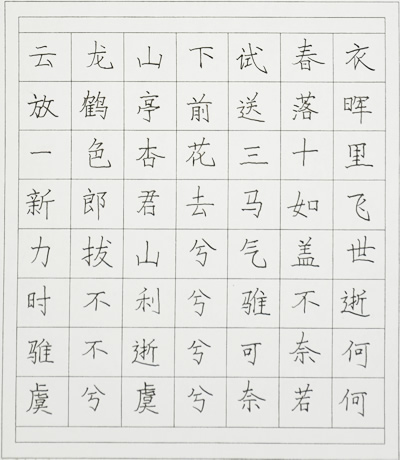 云龙山下试春衣
放鹤亭前送落晖
一色杏花三十里
新郎君去马如飞
力拔山兮气盖世
时不利兮骓不逝
骓不逝兮可奈何
虞兮虞兮奈若何